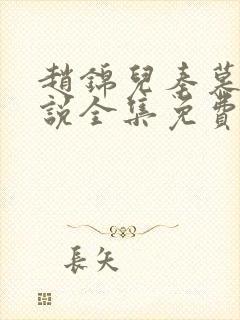 趙錦兒秦慕
說全集免費
長矢